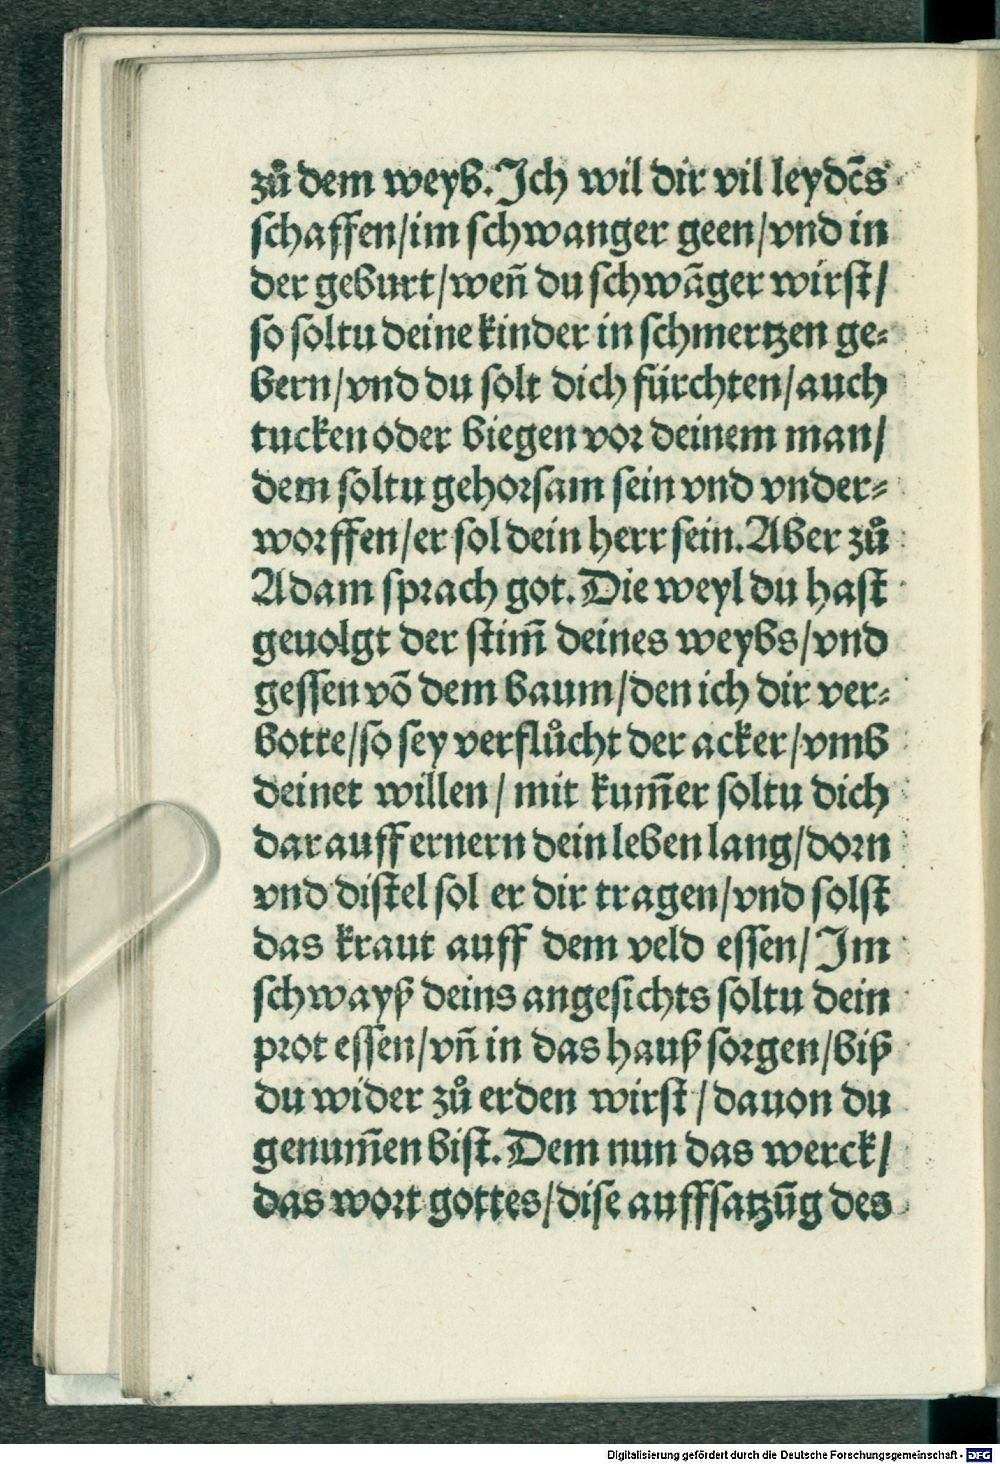 zů dem weyb. Ich wil dir vil leydēs
schaffen/im schwanger geen/vnd in
der geburt/weñ du schwãger wirst/
so soltu deine kinder in schmertzen ge⸗
bern/vnd du solt dich fürchten/auch
tucken oder biegen vor deinem man/
dem soltu gehorsam sein vnd vnder⸗
worffen/er sol dein herr sein. Aber zů
Adam sprach got. Die weyl du hast
geuolgt der stim̃ deines weybs/vnd
gessen võ dem baum/den ich dir ver⸗
botte/so sey verflůcht der acker/vmb
deinet willen/mit kum̃er soltu dich
darauff ernern dein leben lang/dorn
vnd distel sol er dir tragen/vnd solst
das kraut auff dem veld essen/Im
schwayß deins angesichts soltu dein
prot essen/vñ in das hauß sorgen/biß
du wider zů erden wirst/dauon du
genum̃en bist. Dem nun das werck/
das wort gottes/dise auffsatzũg des
Digitalisierung gefördert durch die Deutsche Forschungsgemeinschaft - DFG